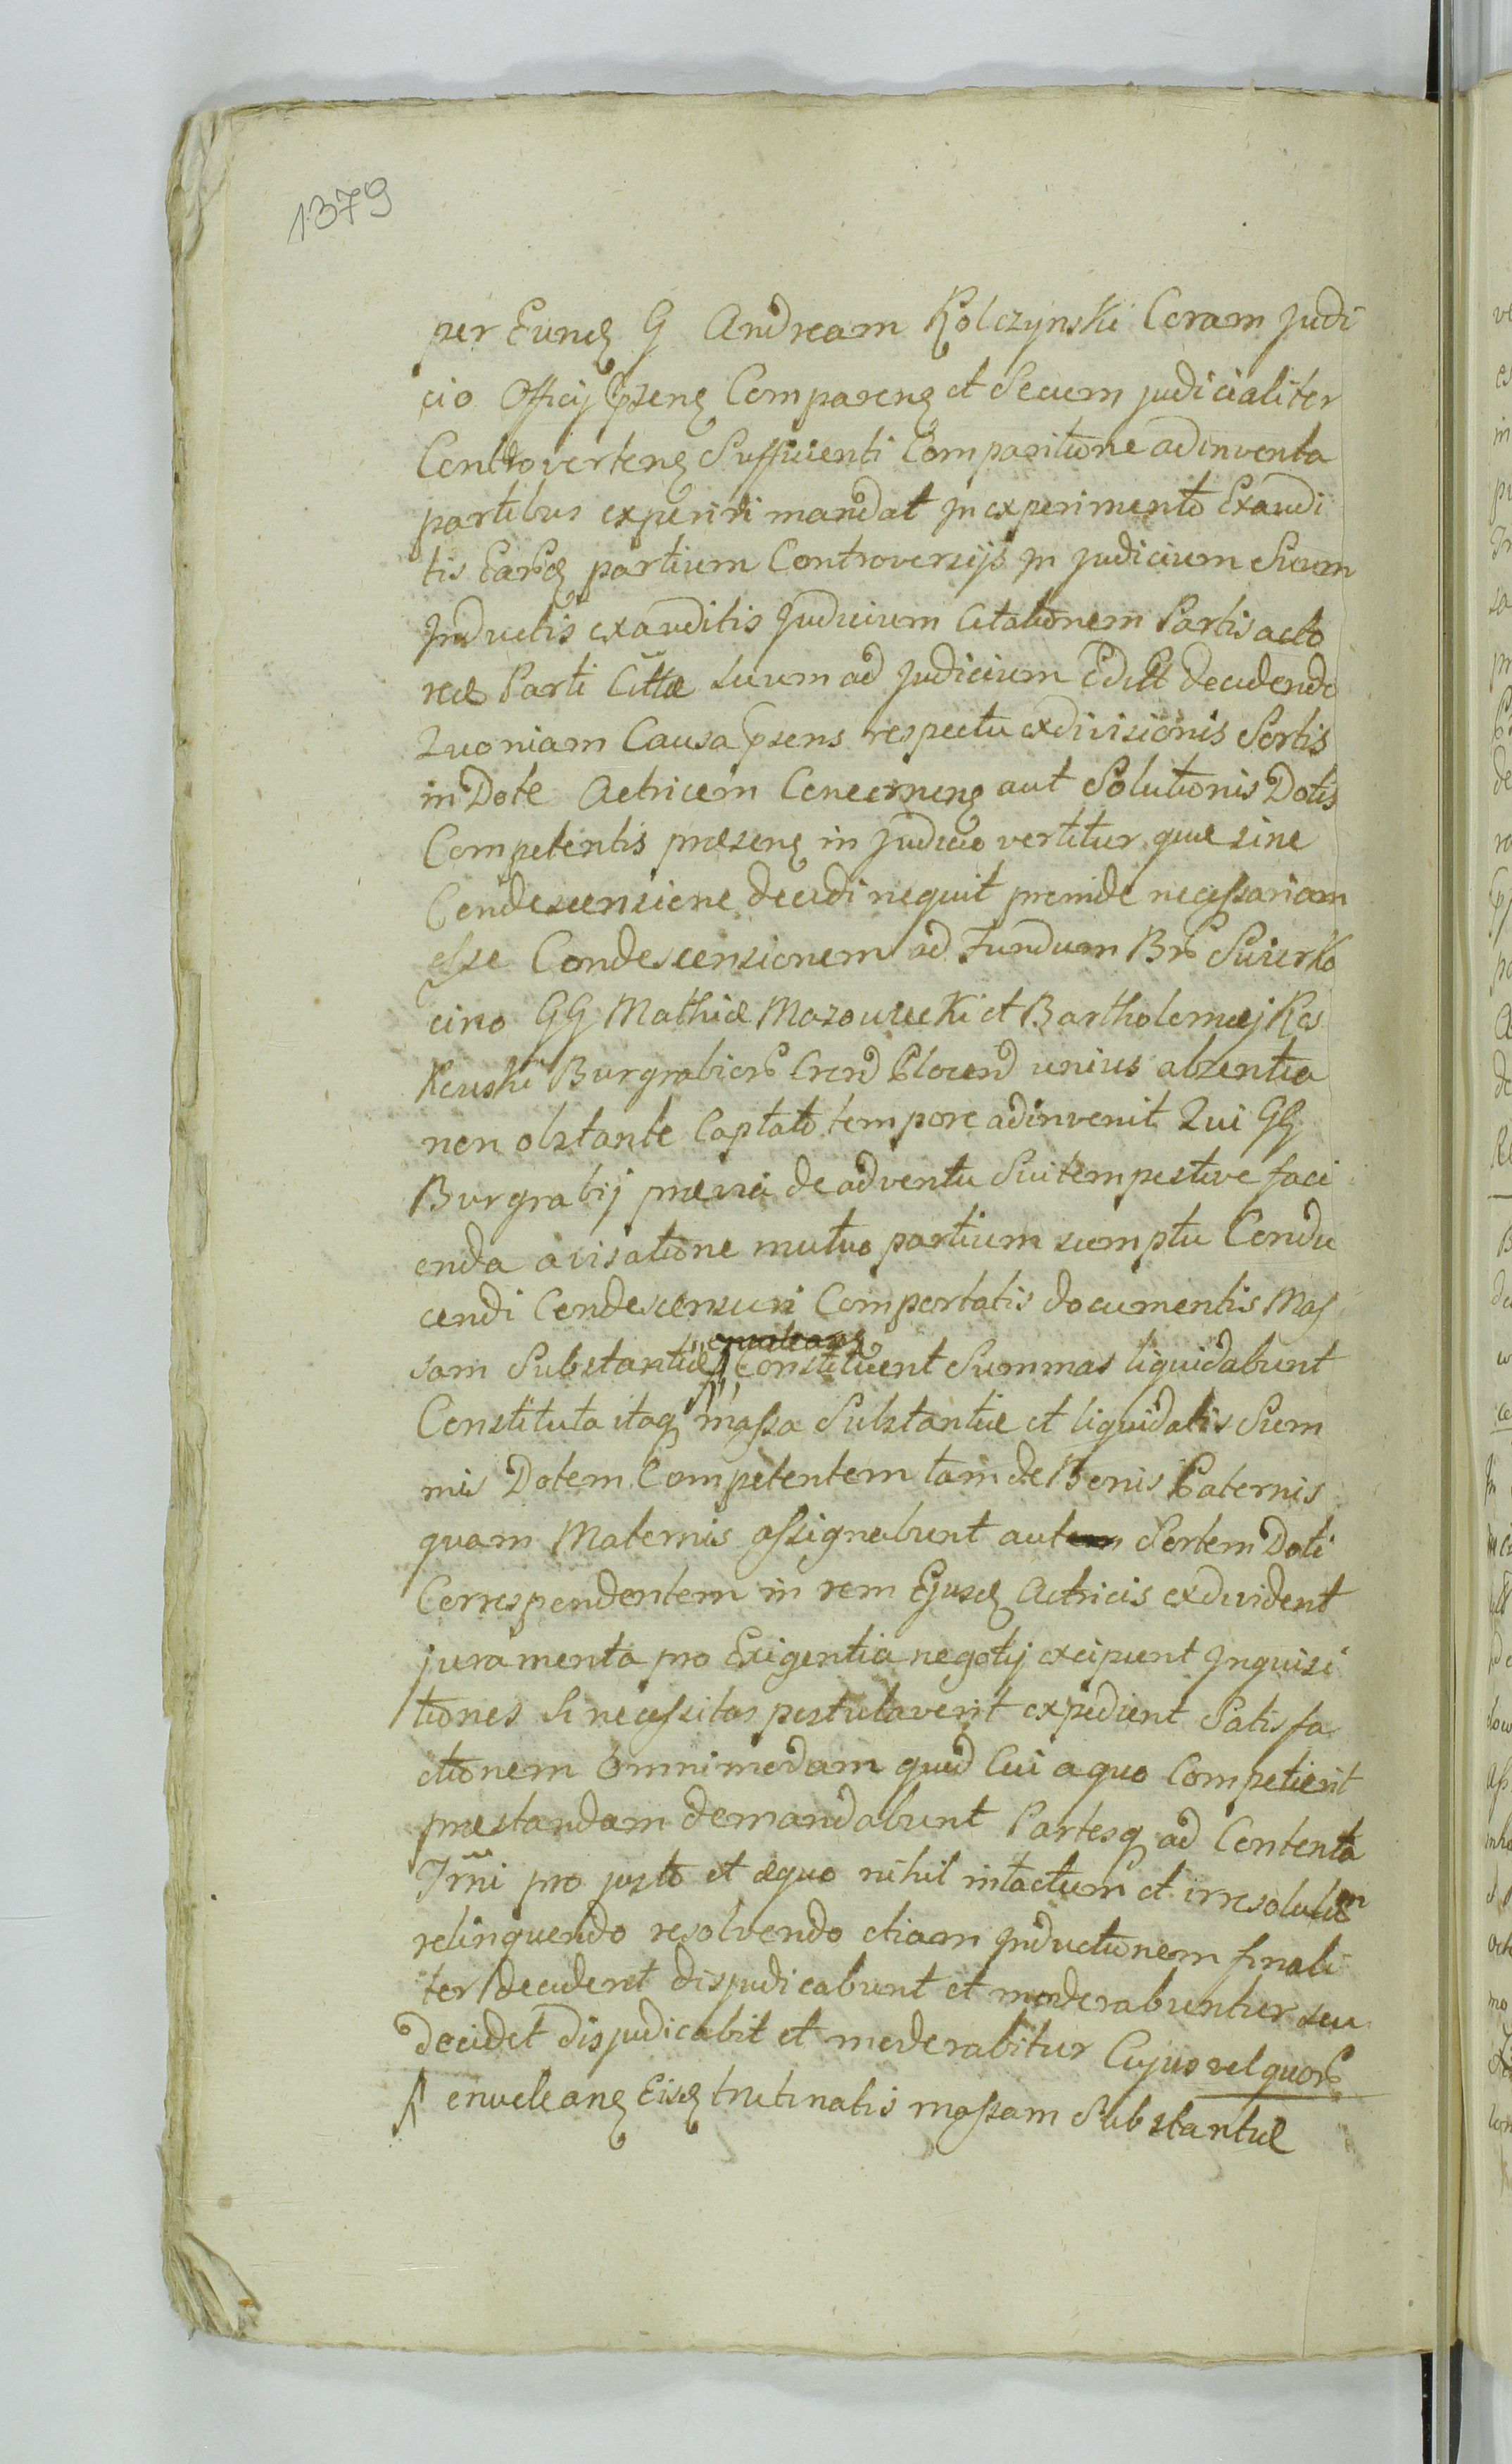 1379
per Eundȝ G Andream Kolczynski Coram Judi
cio Officij Pnsenȝ Comparenȝ et Secum judicialiter
Controvertenȝ Sufficienti Comparitione adinventa
partibus experiri mandat Jn experimento Exaudi
tis Earūdȝ partium Controversijs Jn Judicium Suum
Jnductis exauditis Judicium Citationem Partis acto
reæ Parti Cittæ suum ad Judicium Edidit Decidendo
Quoniam Causa Pnsens respectu exdivisionis Sortis
in Dote Actricem Concernenȝ aut Solutionis Dotis
Competentis præsenȝ in Judicio vertitur quæ sine
Condescensione decidi nequit proinde necessariam
esse Condescensionem ad Fundum Bnr Swierko
cino GG Mathiæ Mazowiecki et Bartholomæj Kos
kowski Burgrabior Crend Plocend unius absentia
non obstante Captato tempore adinvenit Qui GG
Burgrabij prævia de adventu Sui tempestive faci
enda avisatione mutuo partium sumptu Condu
cendi Condescensuri Comportatis documentis Mas
sam Substantiæ enucleanȝ Constituent Summas liquidabunt
Constituta itaq massa Substantiæ et liquidatis Sum
mis Dotem Competentem tam de Bonis Paternis
quam Maternis assignabunt autem Sortem Doti
Correspondentem in rem Ejusdȝ Actricis exdivident
juramenta pro Exigentia negotij excipient Jnquisi
tiones Si necessitas postulaverit expedient Satisfa
ctionem omnimodam quid Cui a quo Competierit
præstandam demandabunt Partesq ad Contenta
Trmi pro justo et æquo nihil intactum et irresolutum
relinquendo resolvendo etiam Jnductionem finali
ter decident disjudicabunt et moderabuntur seu
decidet disjudicabit et moderabitur Cujus vel quor
enucleanȝ Eisdȝ trutinatis massam Substantiæ